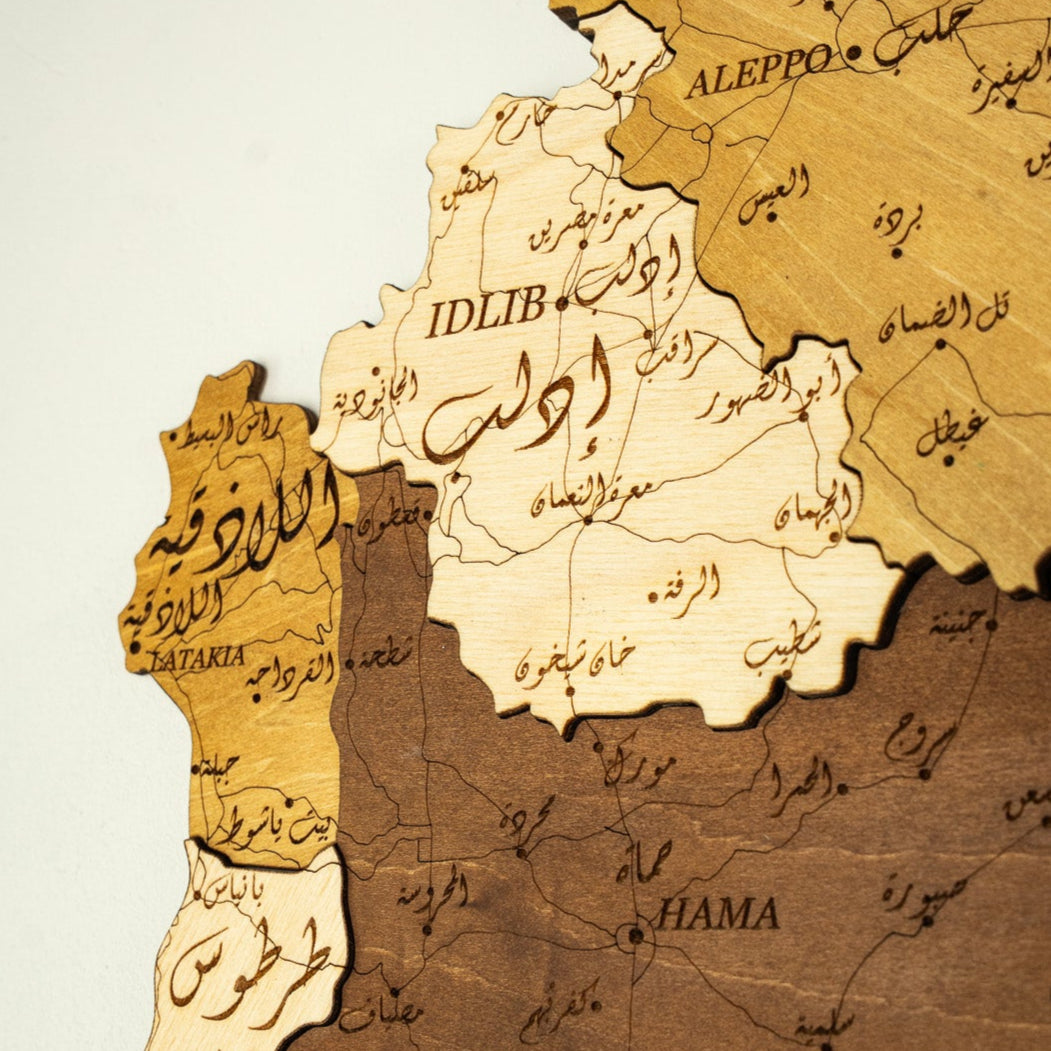 سرمدا
حلب
ALEPPO
السفيرة
حارم
سلقين
العيس
بردة
معرة مصرين
إدلب
IDLIB
تل الضمان
سراقب
إدلب
الجانودية
أبو الضهور
راس البسيط
غيطل
اللاذقية
معرة النعمان
الجهمان
قفطون
الرفة
اللاذقية
LATAKIA
جنينة
شطيب
شطحة
خان شيخون
القرداحه
سروج
مورك
جبلة
الحمرا
محردة
بيت ياشوط
حماة
بانياس
المحروسة
صبورة
HAMA
طرطوس
مصياف
كفربهم
سلمية